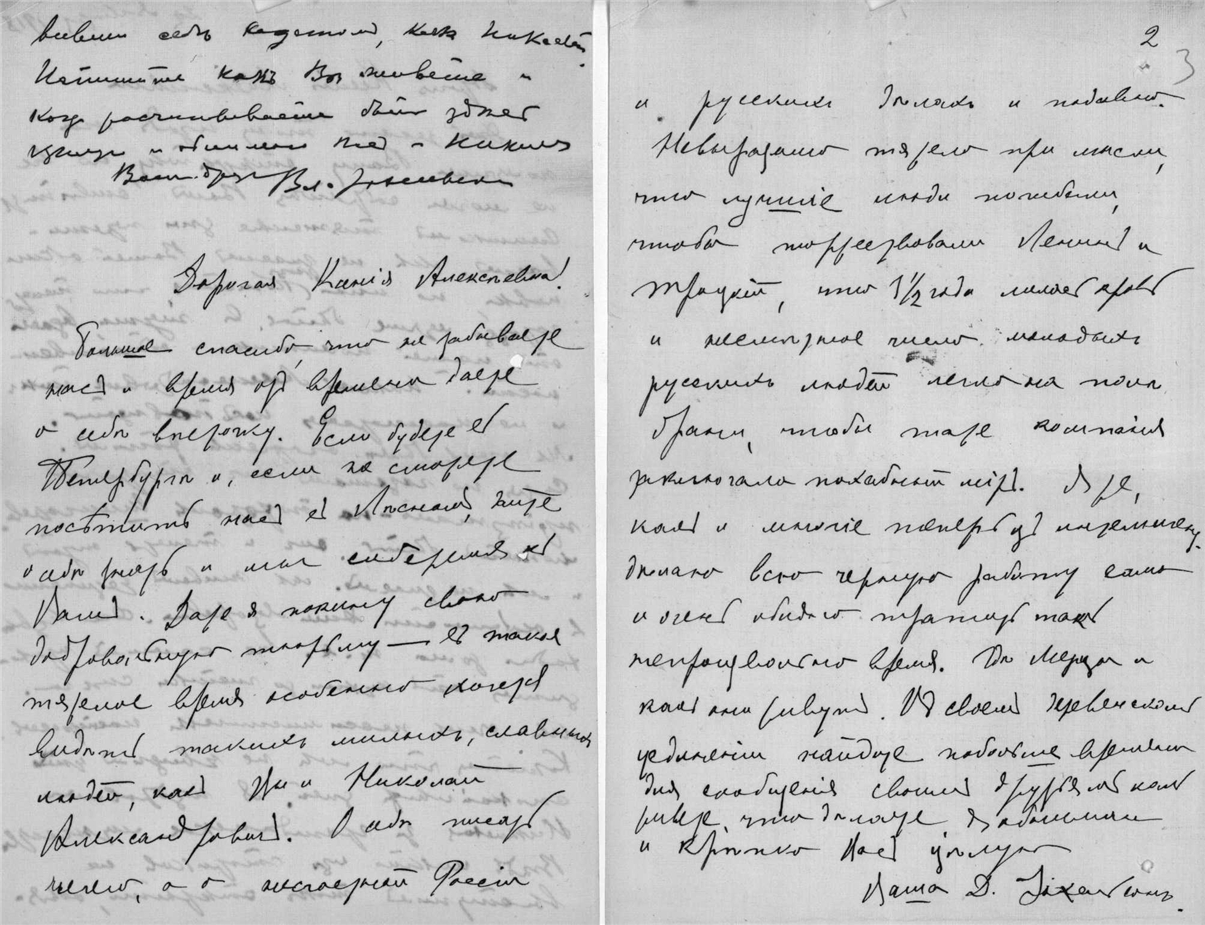 себя кадетом, как Николай
Напишите какъ Вы живете и
когда расчитываете быть
цѣлую и обнимаю
Вашъ другъ Вл.
Дорогая Ксенія Алексѣевна!
Большое спасибо, что не забываете
насъ и время отъ времени даете
о себѣ вѣсточку. Если будете въ
Петербургѣ и, если не сможете
посѣтить насъ въ Лѣсномъ, дайте
о себѣ знать и мы съѣздимъ къ
Вамъ. Даже я покину свою
добровольную тюрьму — въ такое
тяжелое время особенно хочется
видѣть такихъ милыхъ, славныхъ
людей, какъ Вы и Николай
Александровичъ. О себѣ писать
нечего, а о несчастной Россіи
2
3
и русскихъ дѣлахъ и подавно.
Невыразимо тяжело при мысли,
что лучшіе люди погибали,
чтобы торжествовали Ленинъ и
Троцкій, что 1½ года лилась кровь
и несмѣтное число молодыхъ
русскихъ людей легло на поля
брани, чтобы такая компанія
заключала похабный міръ. Я же,
какъ и многіе теперь изъ интеллигенц.
дѣлаю всю черную работу сама
и очень обидно тратить такъ
непроизводительно время. Гдѣ
какъ они живутъ. Въ своемъ деревенскомъ
уединеніи найдите побольше времени
для сообщенія своимъ друзьямъ какъ
живете, что дѣлаете. Я обнимаю
и крѣпко Васъ цѣлую
Ваша Д.